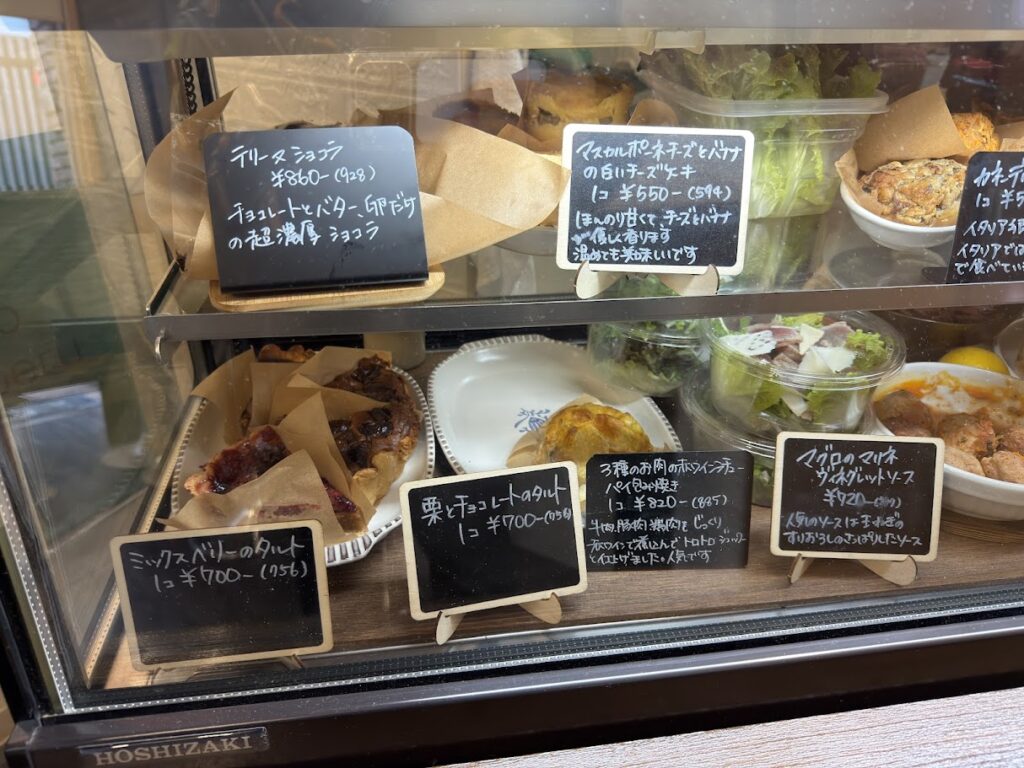 テリーヌショコラ
¥860-(928)
チョコレートとバター、卵だけ
の超濃厚ショコラ
マスカルポーネチーズとバナナ
の白いチーズケーキ
1コ ¥550-(594)
ほんのり甘くて、チーズとバナナ
が優しく香ります
温めても美味しいです
イタリア
イタリアでは
で食べてい
ミックスベリーのタルト
1コ ¥700-(756)
栗とチョコレートのタルト
1コ ¥700-(756)
3種のお肉の赤ワインシチュー
パイ包み焼き
1コ ¥820-(885)
牛肉、豚肉、鶏肉をじっくり
赤ワインで煮込んでトロトロシチュー
に仕上げました。人気です
マグロのマリネ
ヴィネグレットソース
¥920-
人気のソースは玉ねぎの
すりおろしのさっぱりしたソース
HOSHIZAKI